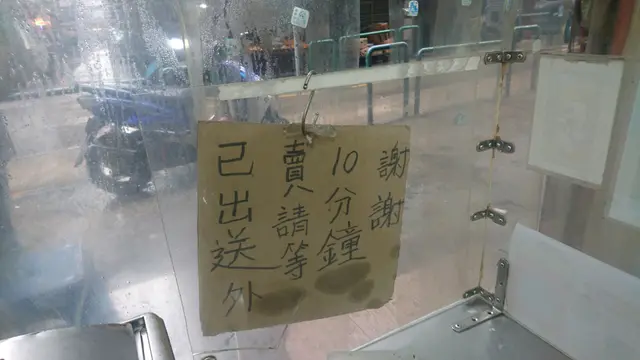 已出送外
賣請等
10分鐘
謝謝